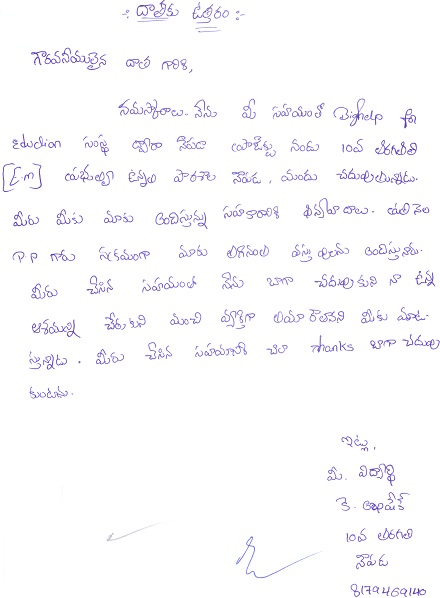 -: దాతకు ఉత్తరం :-
గౌరవనీయులైన దాత గారికి,
నమస్కారాలు. నేను మీ సహయంతో Bighelp for
Eduction సంస్థ ద్వారా నెపడ ప్రాజెక్టు నందు 10వ తరగతి
[E.m] ఉన్నత పాఠశాల నెపడ, నందు చదువుతున్నాను.
మీరు మీకు మాకు అందిస్తున్న సహకారానికి ధన్యవాదాలు. ప్రతినెల
P.P గారు సక్రమంగా మాకు వస్తువులను అందిస్తున్నారు.
మీరు చేసిన సహయంతో నేను బాగా చదువుకుని నా ఉన్న
ఆశయాన్ని చేరుకుని మంచి వ్యక్తిగా మీకు మాట
స్తున్నాను. మీరు చేసిన సహయానికి చలా thanks బాగా చదువు
కుంటాను.
ఇట్లు,
మీ విద్యార్థి
కె. అభిషేక్
10వ తరగతి
నెపడ
8179469140